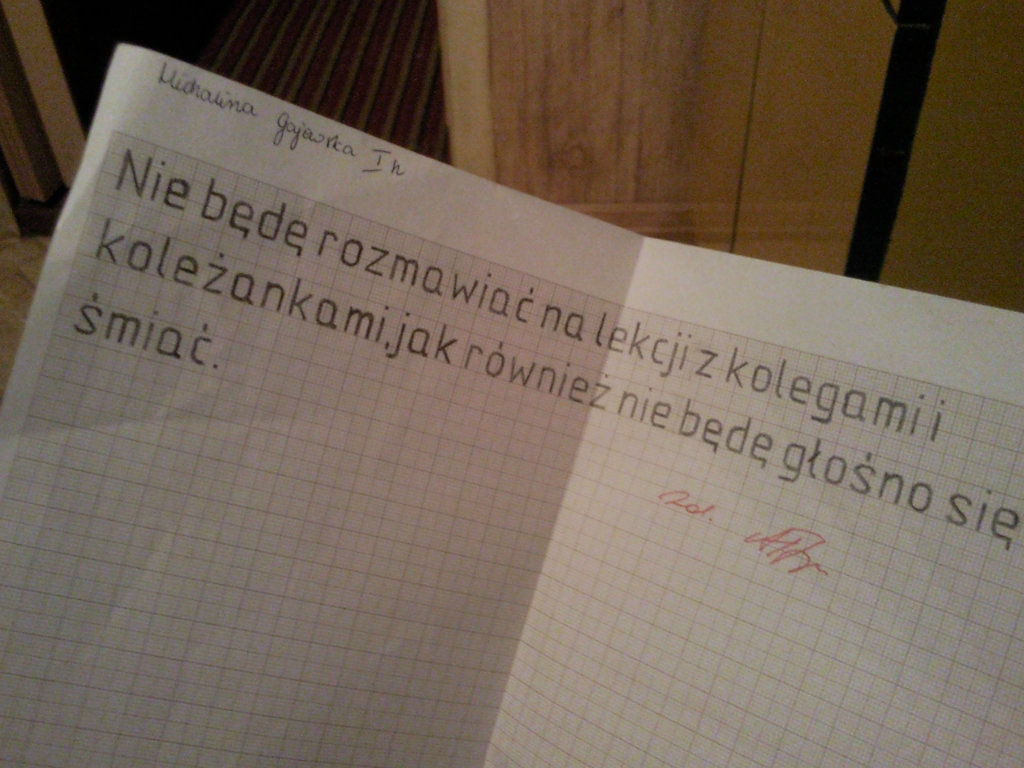 Michalina Gajewska I h
Nie będę rozmawiać na lekcji z kolegami i
koleżankami, jak również nie będę głośno się
śmiać.
zal.